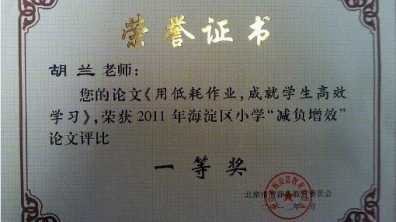 荣誉证书
胡兰老师:
您的论文《用低耗作业,成就学生高效
学习》,荣获2011年海淀区小学“减负增效”
论文评比
一等奖
北京市
委员会